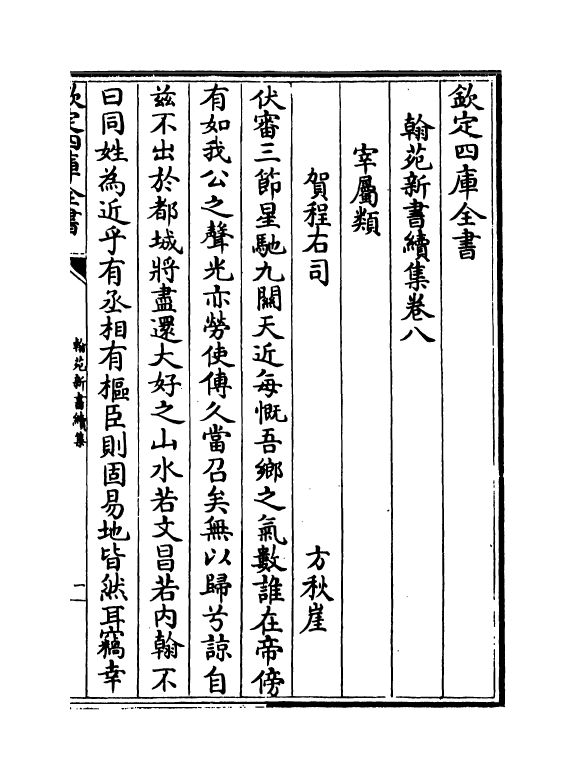 欽定四庫全書
翰苑新書續集卷八
宰屬類
賀程右司　方秋崖
伏審三節星馳九關天近每慨吾鄉之氣數誰在帝傍
有如我公之聲光亦勞使傳久當召矣無以歸兮諒自
兹不出於都城將盡還大好之山水若文昌若内翰不
曰同姓為近乎有丞相有樞臣則固易地皆然耳竊幸
欽定四庫全書
翰苑新書續集